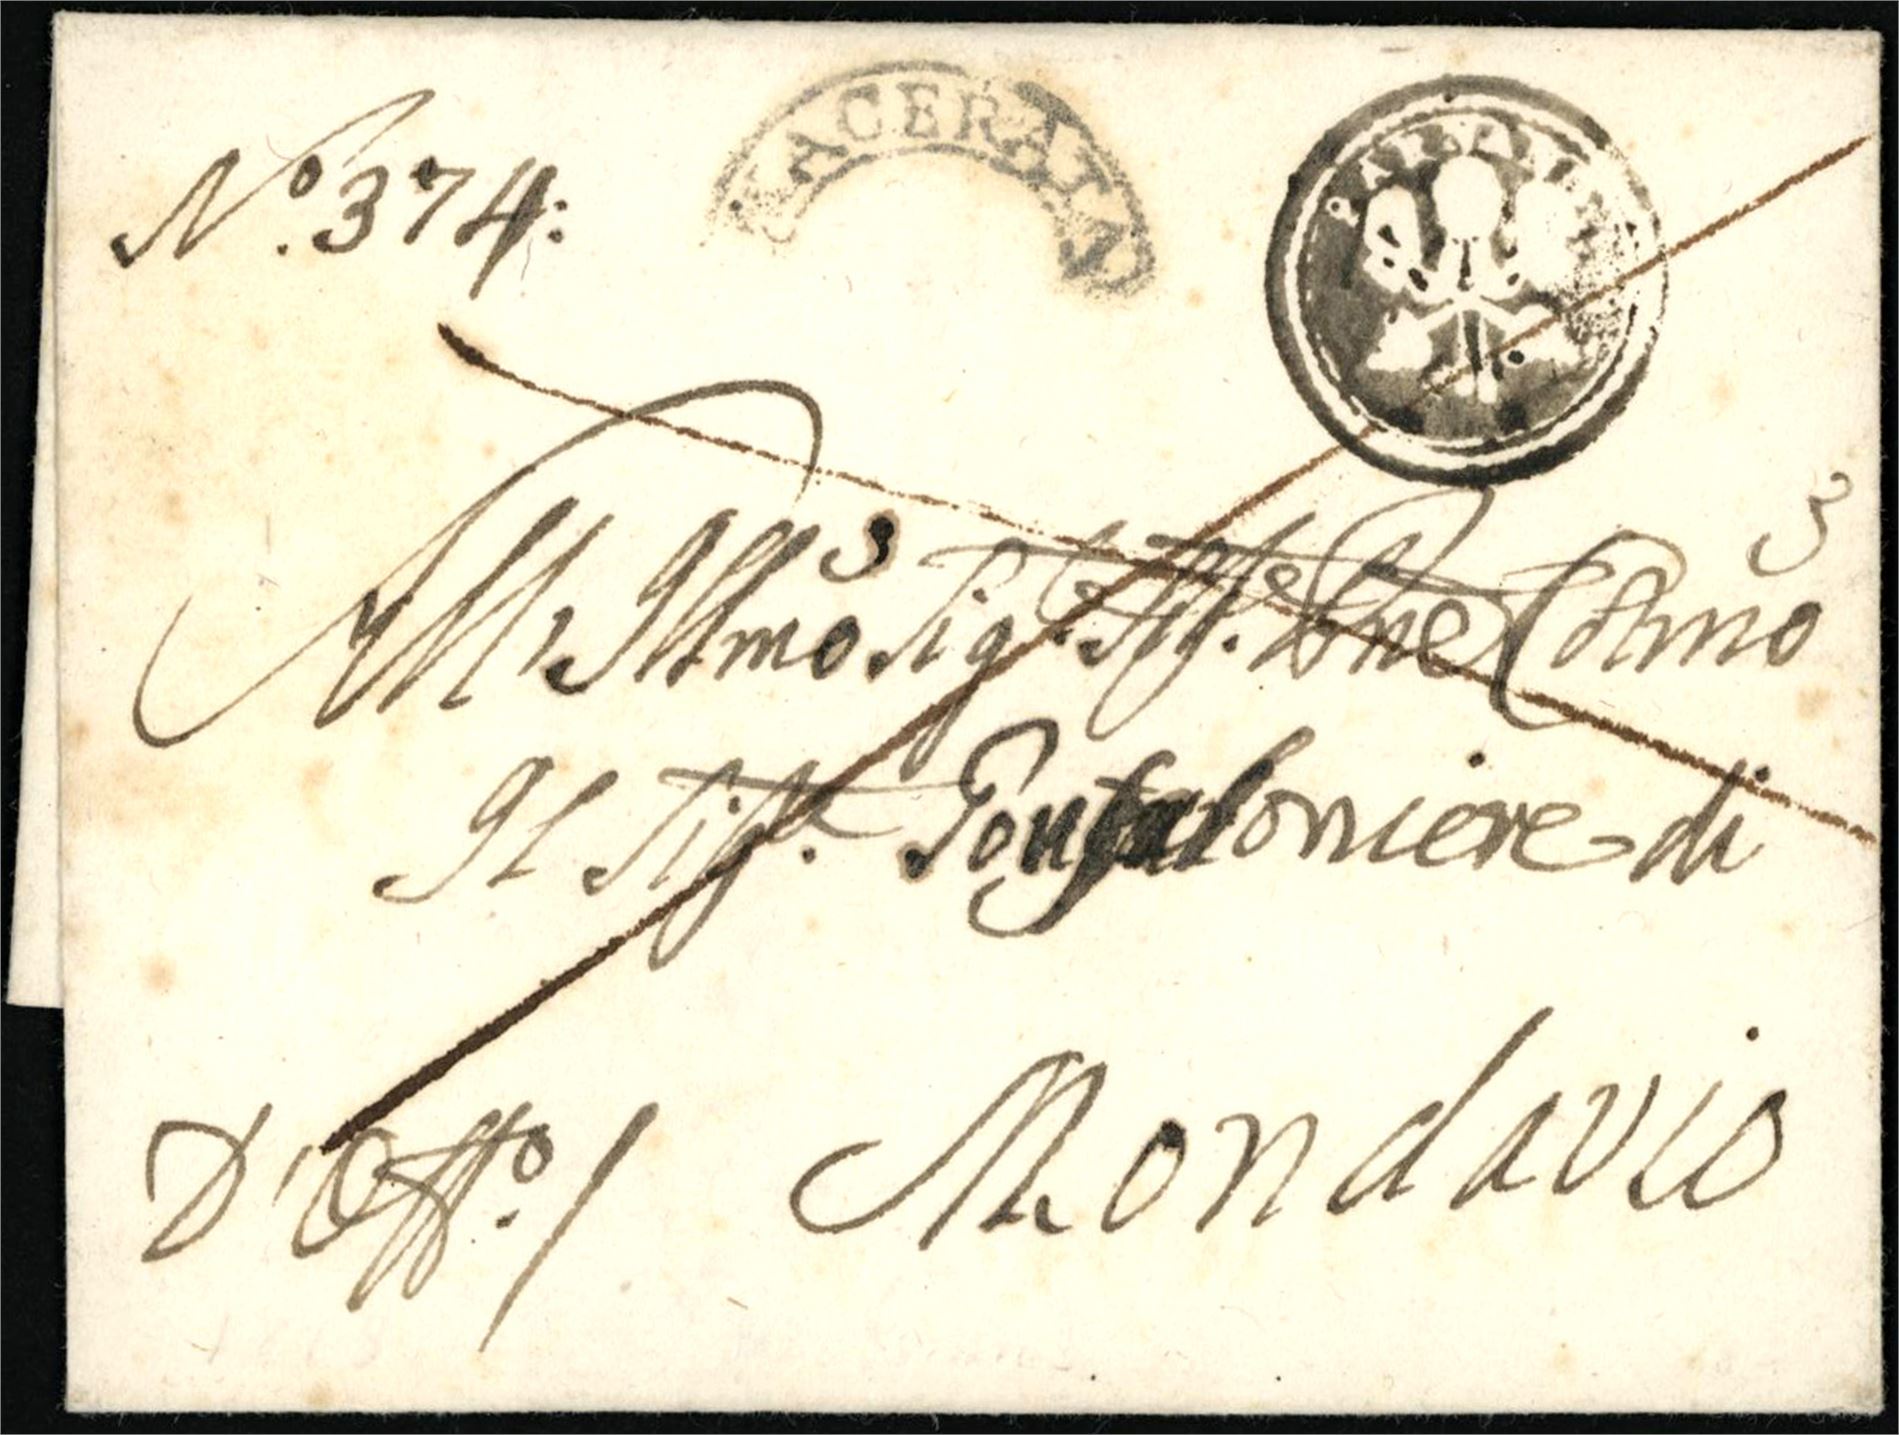 Nº. 374:
MACERATA
All, Illmo Sigr. Sigr. Pne Colmo
Il Sigr. Gonfaloniere di
D'Offo. / Mondavio